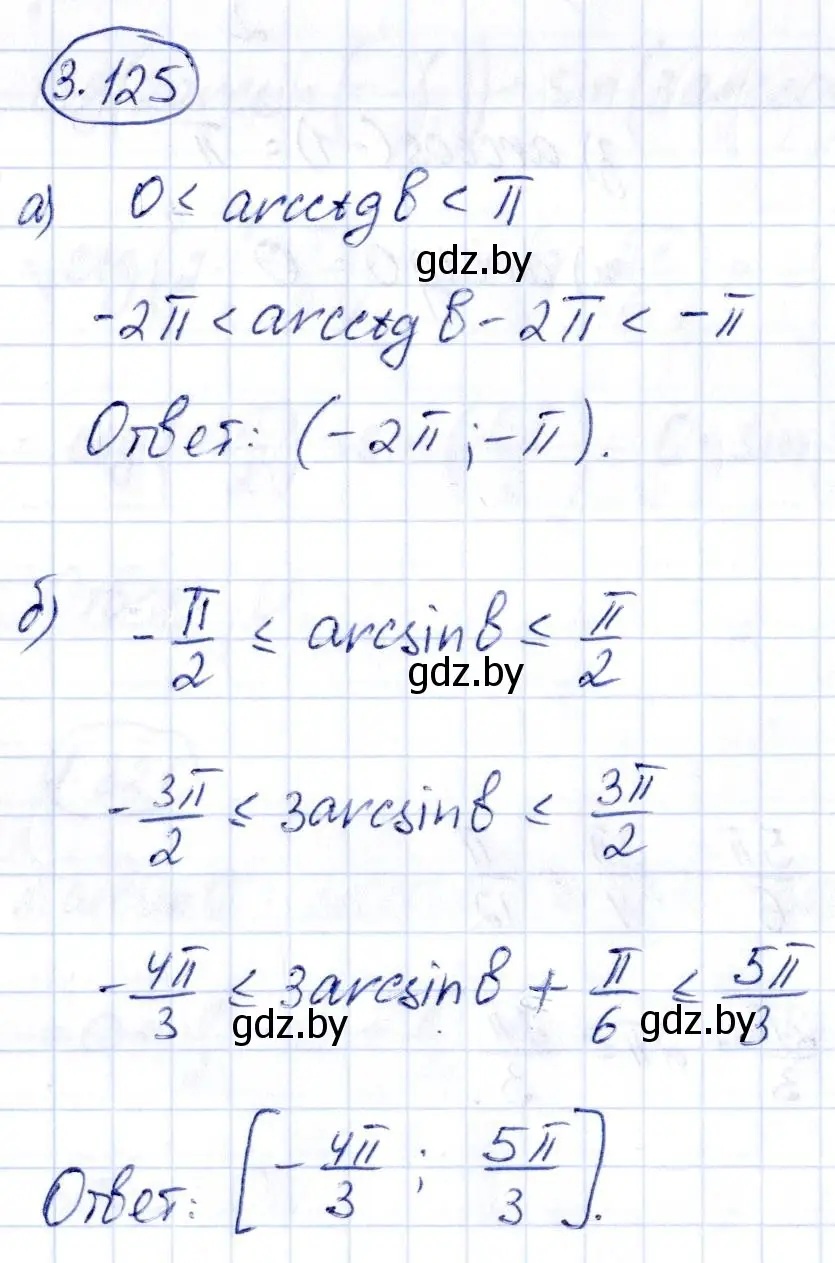 3.125
а) 0 ≤ arcctg b < π
gdz.by
-2π < arcctg b - 2π < -π
Ответ: (-2π; -π).
б) -π/2 ≤ arcsin b ≤ π/2
gdz.by
-3π/2 ≤ 3arcsin b ≤ 3π/2
-4π/3 ≤ 3arcsin b + π/6 ≤ 5π/3
gdz.by gdz.by
Ответ: [-4π/3; 5π/3].